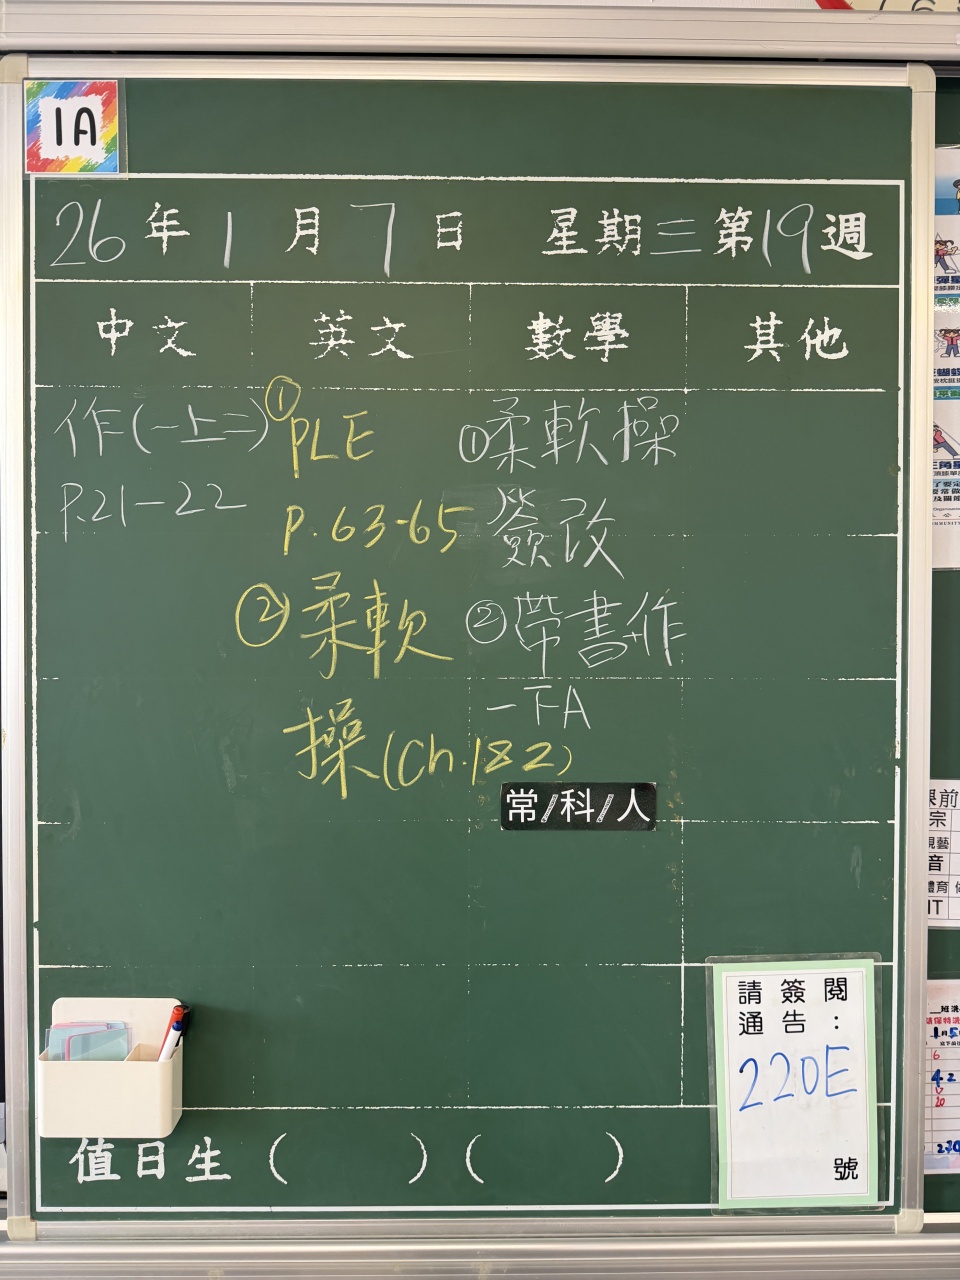 1A
26年1月7日 星期三第19週
中文 英文 數學 其他
作(一上二)
P.21-22
①PLE
P.63-65
②柔軟
操(Ch.1&2)
①柔軟操
簽改
②帶書作
一下A
常/科/人
請簽閱
通告:
220E
號
值日生( )( )